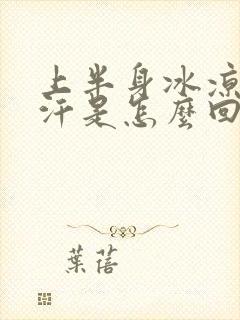 上半身冰凉
汗是怎麼回
葉蓓